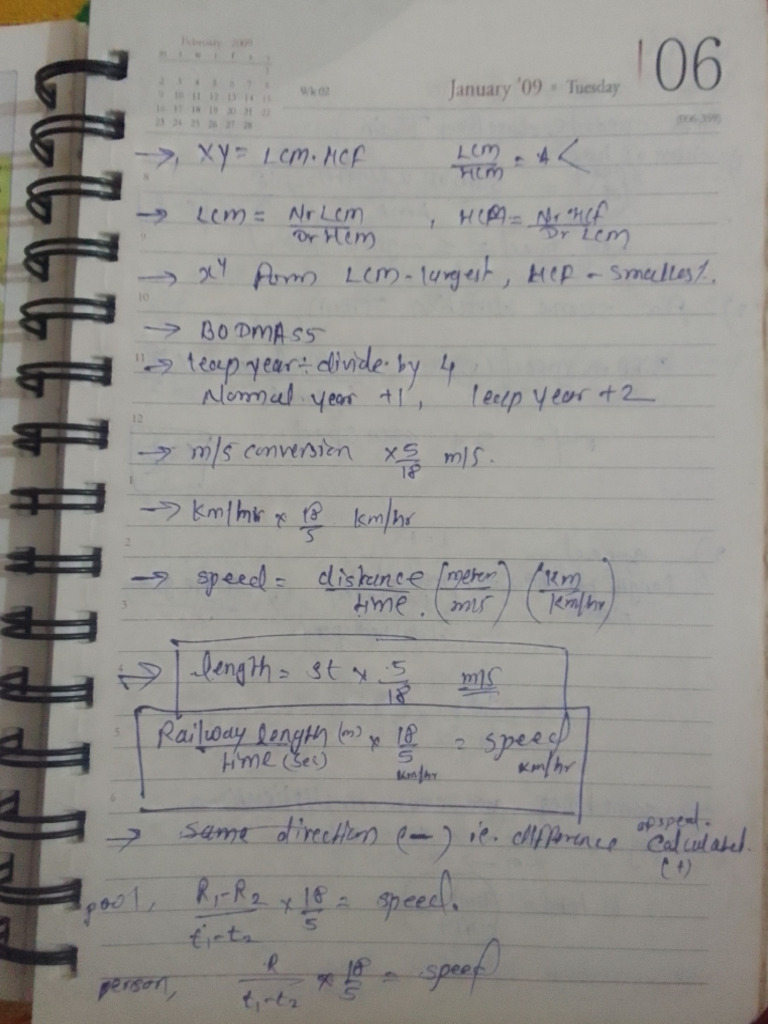 February 2009
2 3 4 5 6 7 8
9 10 11 12 13 14 15
16 17 18 19 20 21 22
23 24 25 26 27 28
Wk 02
January '09 • Tuesday
06
→, XY = LCM. HCF   LCM/HCM = A <
8
→ LCM = Nr LCM / Dr HCM , HCM = Nr HCF / Dr LCM
9
→ x^y form LCM - largest, HCF - smallest.
10
→ BODMASS
11 → leap year ÷ divide by 4
Normal year +1, leap year +2
12
→ m/s conversion × 5/18 m/s.
1
→ km/hr × 18/5 km/hr
2
→ speed = distance/time. (meter/m/s) (km/km/hr)
3
4 → length = st × 5/18 m/s
5
Railway length (m) / time (sec) × 18/5 km/hr = speed km/hr
6
→ same direction (-) i.e. difference of speed. calculated.
(+)
pool, R1-R2 / t1-t2 × 18/5 = speed.
person, R / t1-t2 × 18/5 = speed